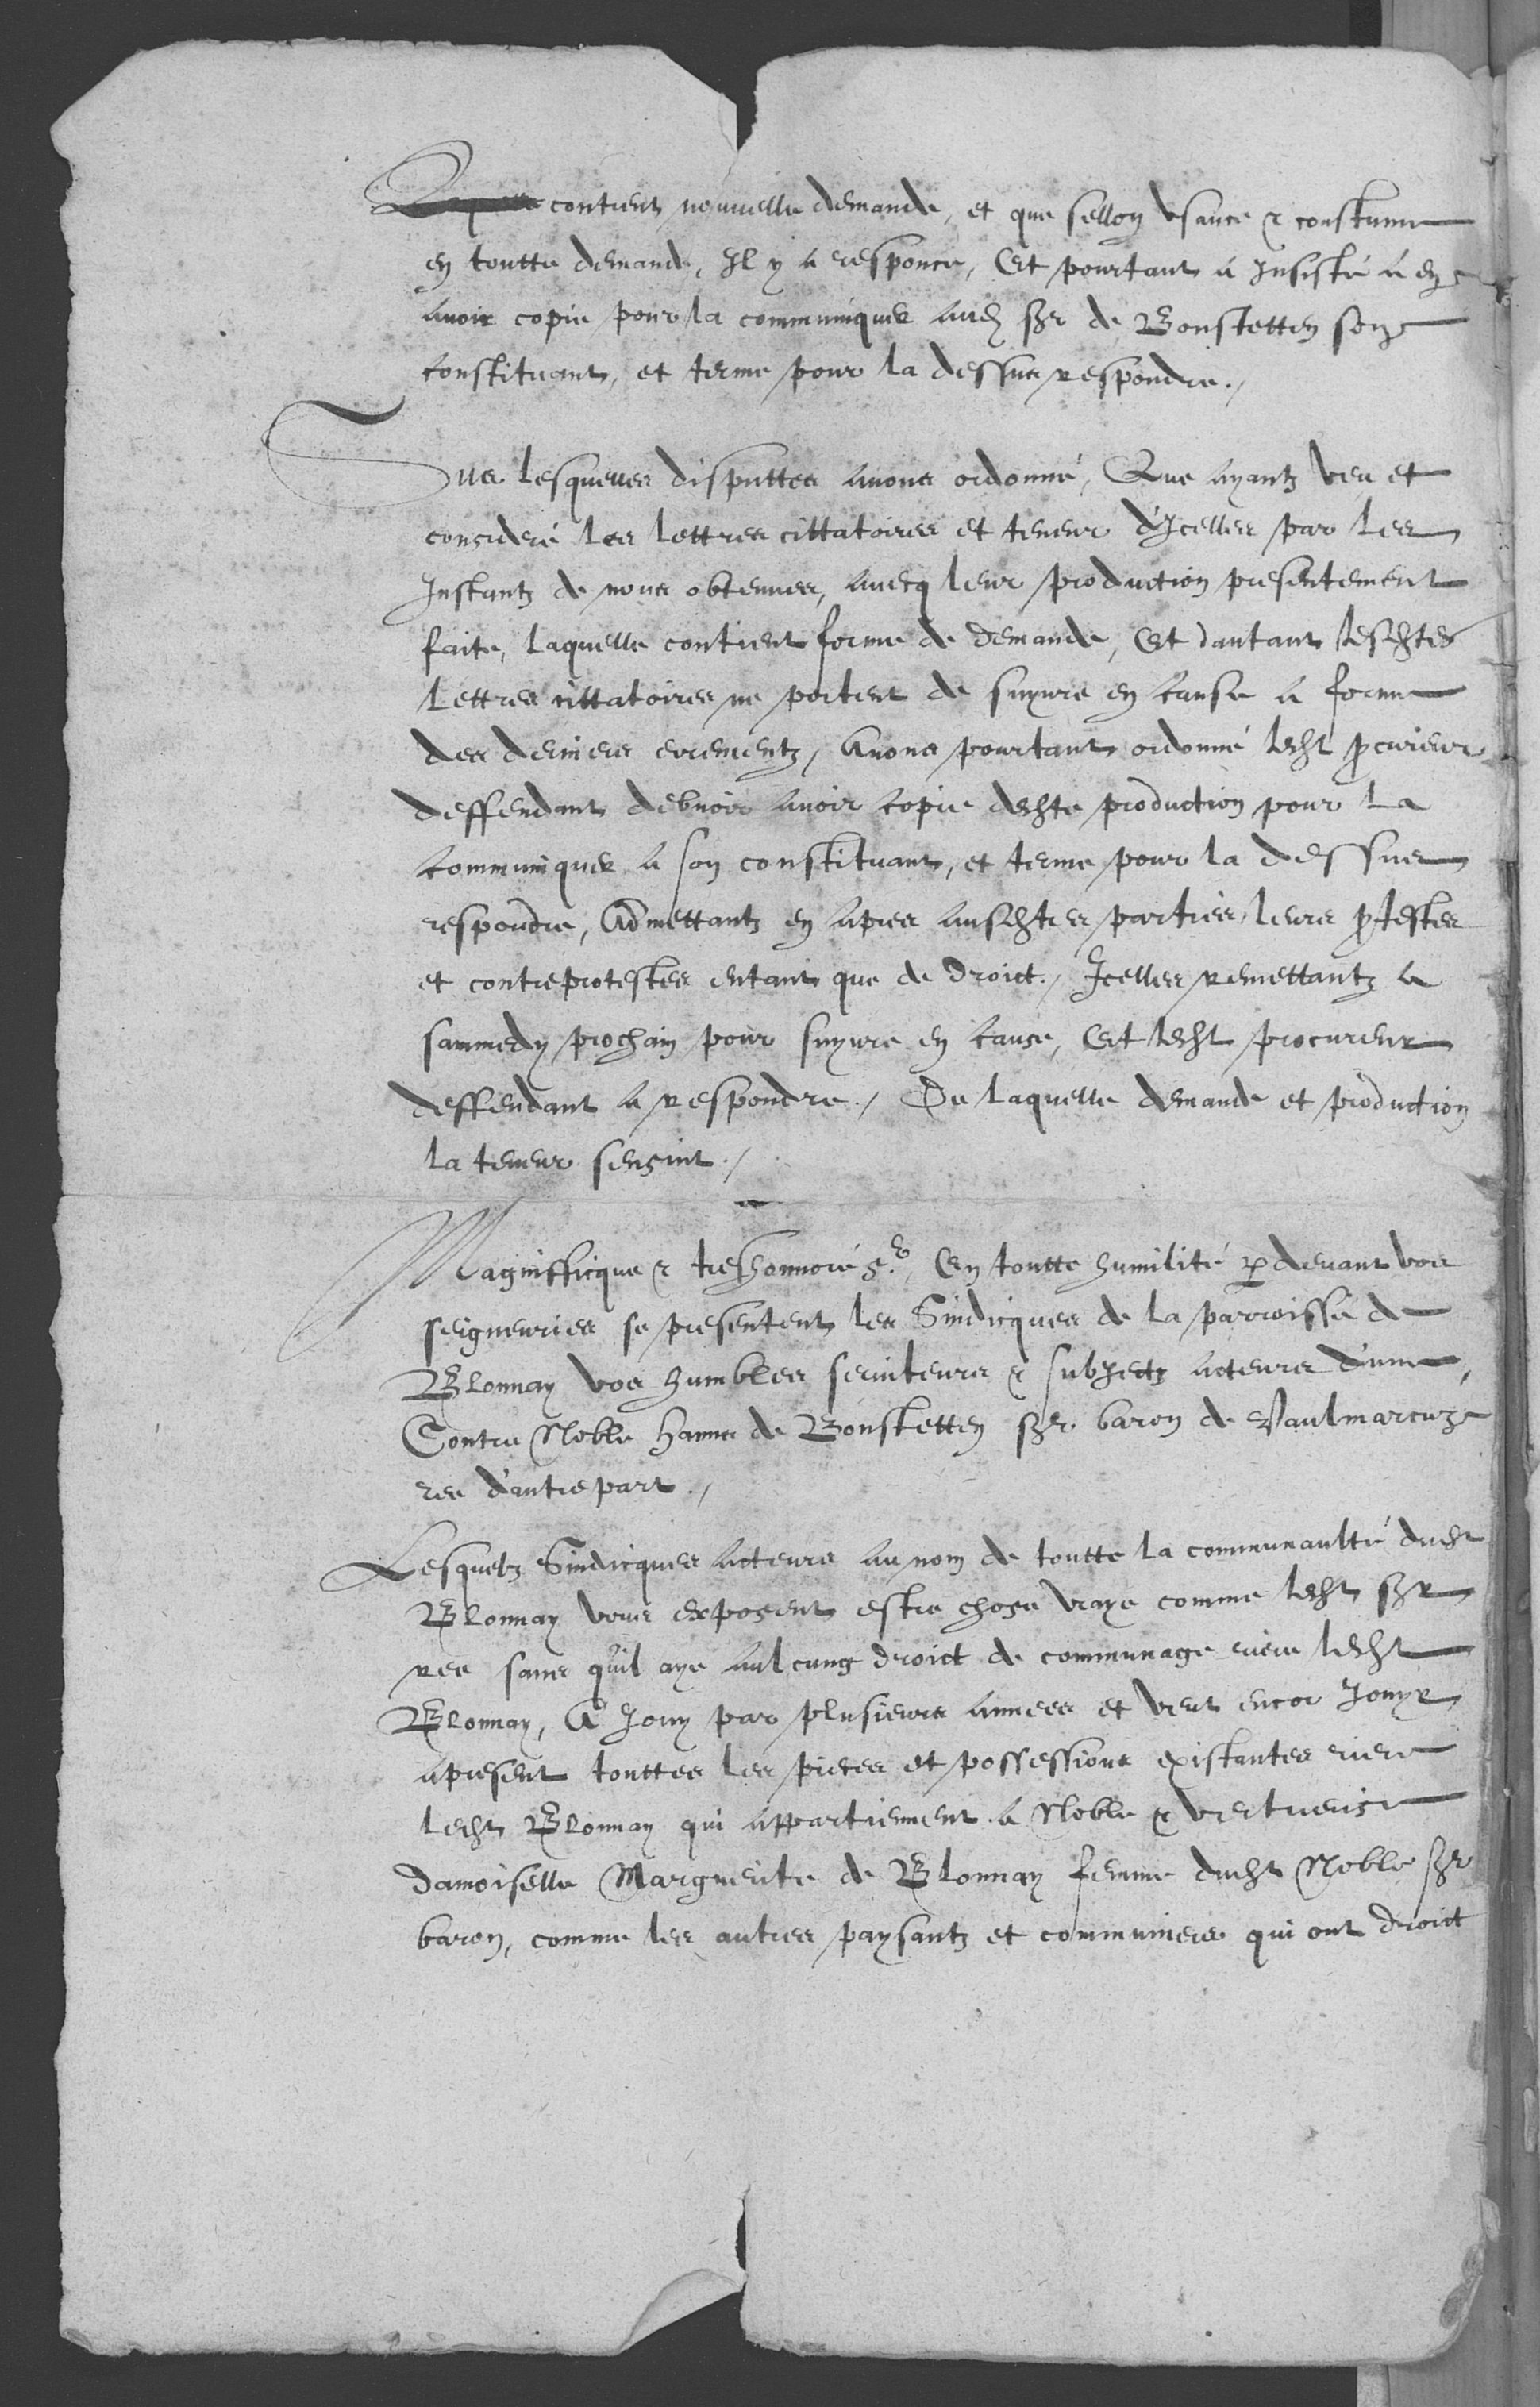 Laquelle contient nouuelle demande, et que sellon vsance & coustume
en toutte demande, Il y a responce, Et pourtant a Insisté a en
auoir copie pour la communiquer aud sgr de Bonstetten son
constituant, et terme pour la dessus respondre./
Sus lesquelles disputtes auons ordonné, Que ayantz veu et
consideré les lettres cittatoires et teneur d'Icelles par les
Instantz de nous obtenues, auecq leur production presentement
faite, laquelle contient forme de demande, Et dautant lesdtes
lettres cittatoires ne portent de suyure en cause a forme
des derniers errementz, Auons pourtant ordonné ledt pcureur
deffendant debuoir auoir copie dedte production pour la
communiquer a son constituant, et terme pour la dessus
respondre, Admettantz en apres ausdtes parties leurs ptestes
et contreprotestes entant que de droict./ Icelles remettantz a
sammedy prochain pour suyure en cause, Et ledt procureur
deffendant a respondre./ De laquelle demande et production
la teneur sensuit./
Magnifficque & treshonnoré sr. En toutte humilité p deuant vos
seigneuries se presentent les Sindicques de la parroisse de
Blonnay vos humbles seruiteurs & subjectz acteurs d'une,
Contre Noble Hanns de Bonstetten sgr baron de Vaulmarcuz
ree d'autre part./
Lesquelz Sindicques acteurs au nom de toutte la communaulté dudt
Blonnay vous exposent estre chose vraye comme ledt sgr
ree sans qu'il aye aulcung droict de communage riere ledt
Blonnay, A Jouy par plusieurs annees et veut encor Jouyr
apresent touttes les pieces et possessions existantes riere
ledt Blonnay qui appartiennent a Noble & vertueuse
damoiselle Marguerite de Blonnay femme dudt Noble sgr
baron, comme les autres paysantz et communiers qui ont droict